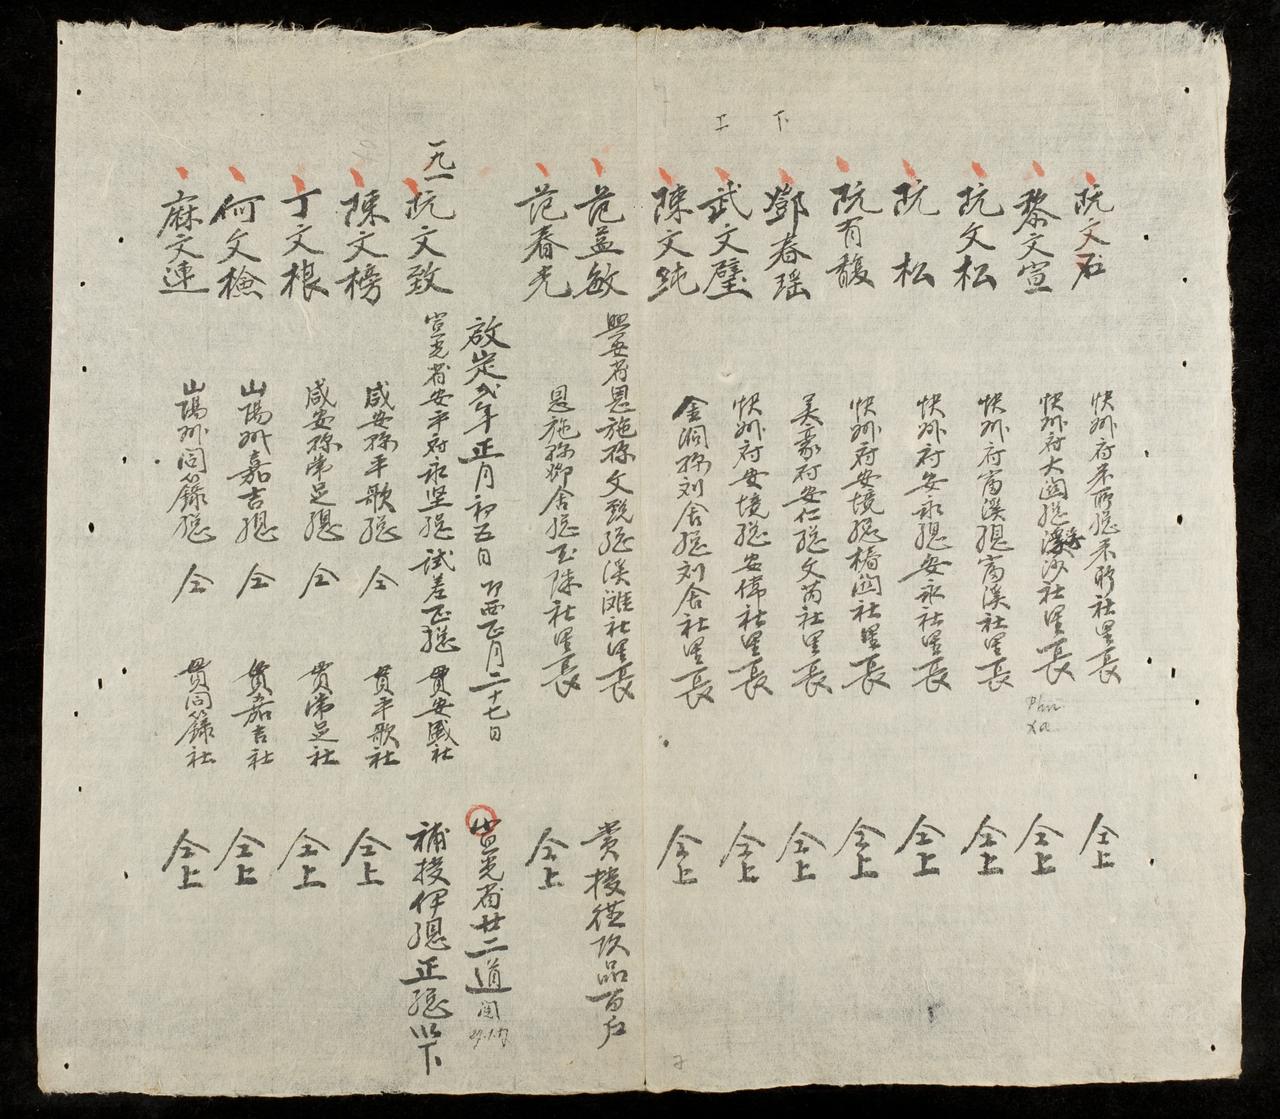 阮文石 快州府禾所總禾所社里長 仝上
黎文宣 快州府大関總漢沙社里長 仝上
Phù Xa
阮文松 快州府富溪總富溪社里長 仝上
阮松 快州府安永總安永社里長 仝上
阮有馥 快州府安境總椿関社里長 仝上
下
鄧春瑶 美豪府安仁總文芮社里長 仝上
工
武文璧 快州府安境總安偉社里長 仝上
陳文純 金洞縣刘舍總刘舍社里長 仝上
范益敏 興安省恩施縣文總灘社里長 賞授從玖品百户
范春光 恩施縣舍總玉社里長 仝上
啟定弍年正月初五日 正月二十七日 宣光省廿二道
一九一
阮文致 宣光省安平府永坚總試差正總 貫安盛社 補授伊總正總以下
陳文榜 咸安縣平歌總 仝 貫平歌社 仝上
丁文根 咸安縣常足總 仝 貫常足社 仝上
何文檢 山陽州嘉吉總 仝 貫嘉吉社 仝上
麻文連 山陽州同籙總 仝 貫同籙社 仝上